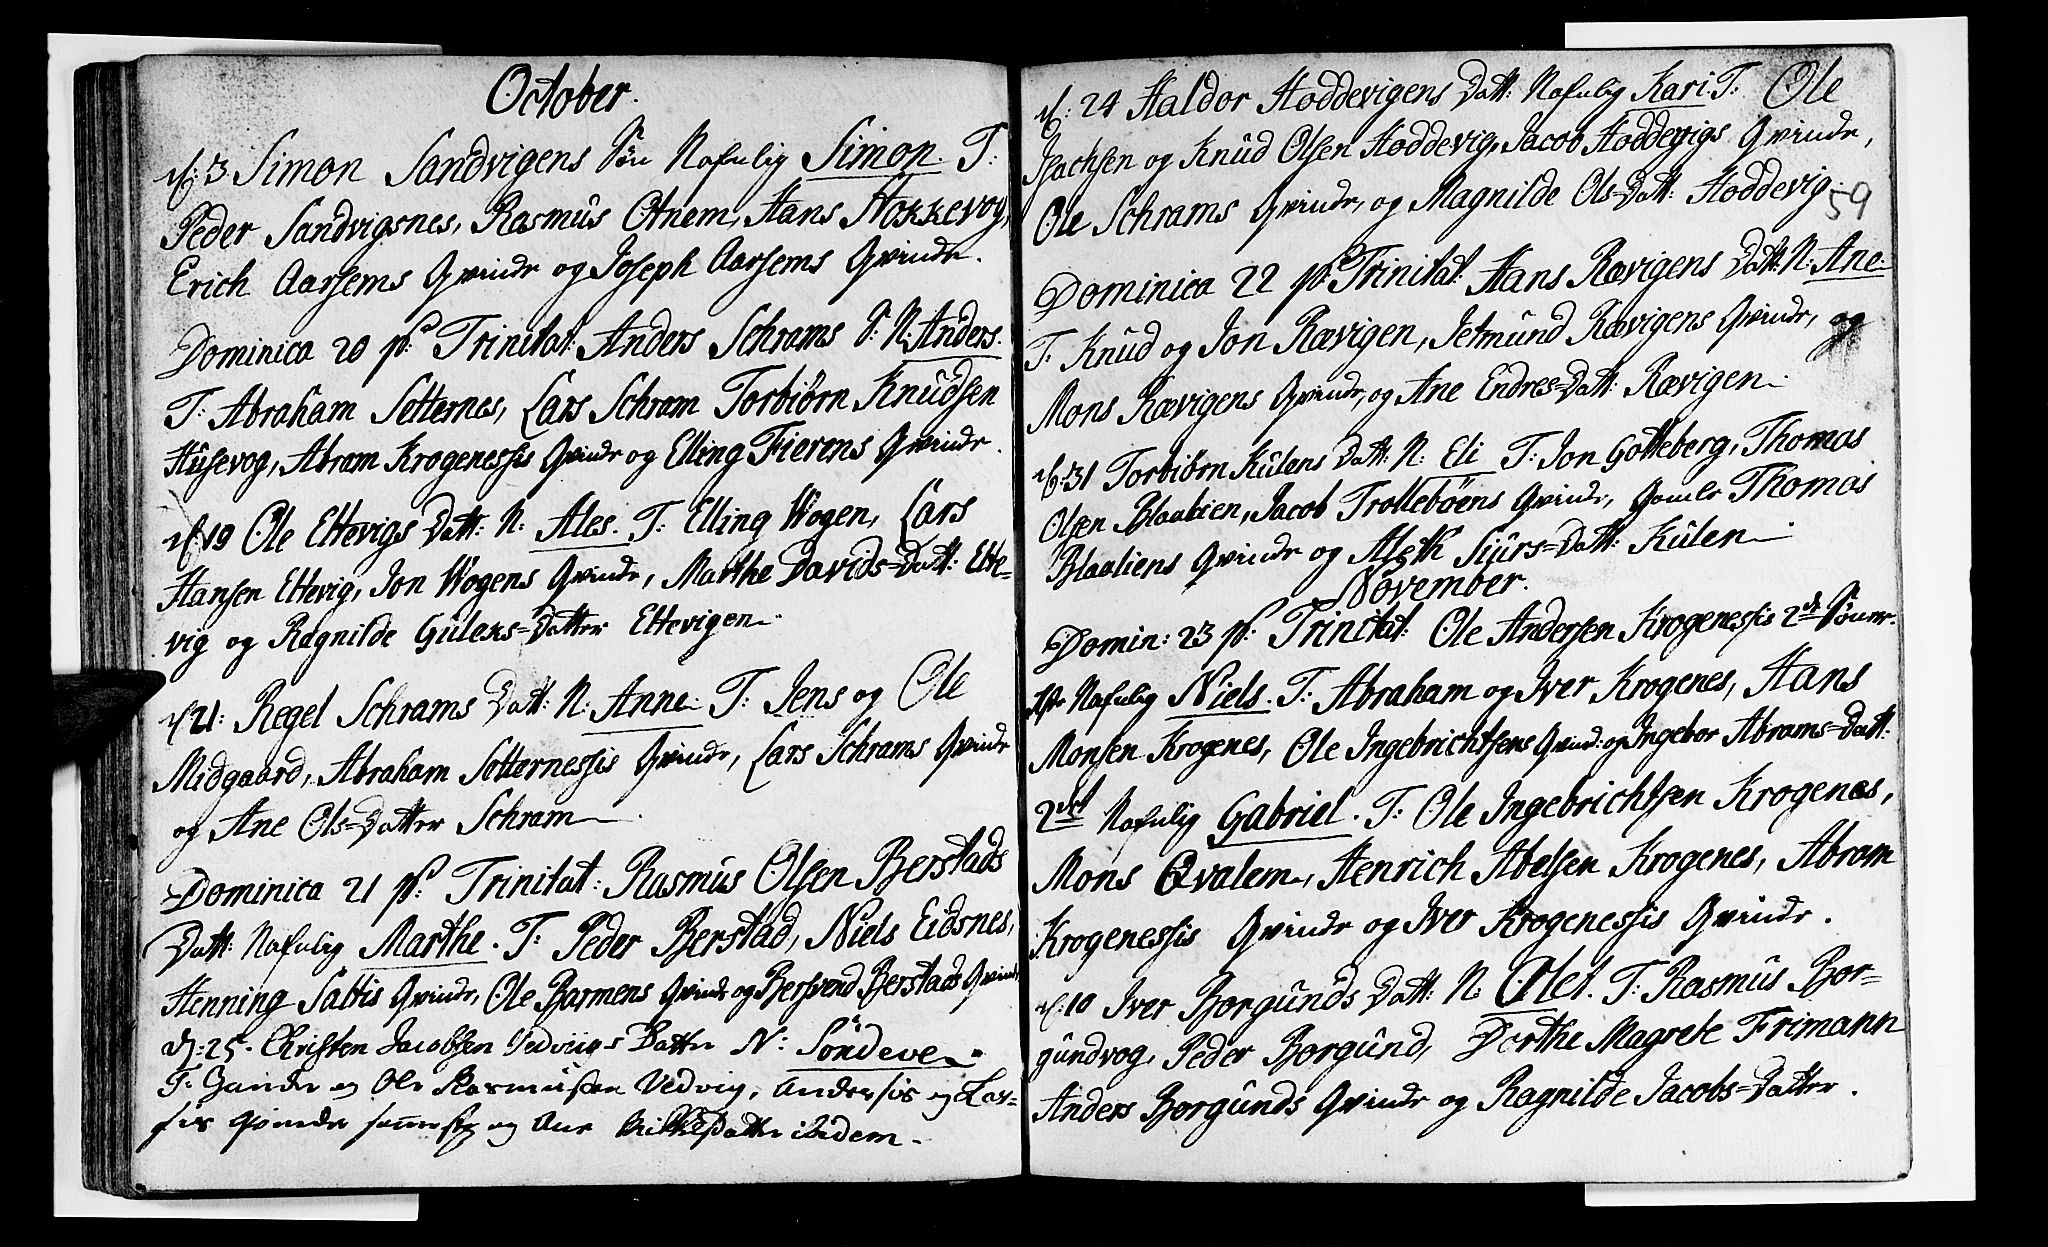 October.
d: 3 Simon Sandvigens Søn Nafnlig Simon. T:
Peder Sandvigsnes, Rasmus Otnem, Hans Hokkevog,
Erich Aarsems Qvinde og Joseph Aarsems Qvinde.
Dominica 20 p: Trinitat: Anders Schrams S: N: Anders.
T: Abraham Setternes, Lars Schram Torbiørn Knudsen
Husevog, Abram Krogenessis Qvinde og Elling Fierens Qvinde.
d: 19 Ole Ettevigs Datt: N: Ales. T: Elling Wogen, Lars
Hansen Ettevig, Jon Wogens Qvinde, Marthe Davids=Datt: Ette=
vig og Ragnilde Guleks=Datter Ettevigen.
d 21: Regel Schrams Datt: N: Anne T: Jens og Ole
Midgaard, Abraham Setternessis Qvinde, Lars Schrams Qvinde
og Ane Ols=Datter Schram.
Dominica 21 p: Trinitat: Rasmus Olsen Berstads
Datt: Nafnlig Marthe. T: Peder Berstad, Niels Eidsnes,
Henning Sattis Qvinde, Ole Barmens Qvinde og Bersvend Berstads Qvinde
d: 25. Christen Jacobsen Vedviigs Datter N: Söndeve
T: og Ole Rasmusen Vedvig, Andersis og Lar=
sis Qvinde og Ane ibidem.
d: 24 Haldor Hoddevigens Datt: Nafnlig Kari T: Ole
Isachsen og Knud Olsen Hoddevig, Jacob Hoddevigs Qvinde,
Ole Schrams Qvinde, og Magnilde Ols=Datt: Hoddevig.
59
Dominica 22 p: Trinitat: Hans Rævigens Datt: N: Ane
T: Knud og Jon Rævigen, Jetmund Rævigens Qvinde, og
Mons Rævigens Qvinde, og Ane Endres=Datt: Rævigen.
d: 31 Torbiørn Kulens Datt: N: Eli T: Jon Gotteberg, Thomas
Olsen Blaalien, Jacob Trollebøens Qvinde, Gamle Thomas
Blaaliens Qvinde og Aleth Siurs=Datt: Kulen
November.
Domin: 23 p: Trinitat: Ole Andersen Krogenessis 2de Sønner.
1ste Nafnlig Niels. T: Abraham og Iver Krogenes, Hans
Monsen Krogenes, Ole Ingebrichtsens Qvind: og Ingebor Abrams=Datt:
2det Nafnlig Gabriel. T: Ole Ingebrichtsen Krogenes,
Mons Qvalem, Henrich Abelsen Krogenes, Abram
Krogenessis Qvinde og Iver Krogenessis Qvinde.
d: 10 Iver Borgunds Datt: N: Olet. T: Rasmus Bor=
gundvog, Peder Borgund, Dorthe Magrete Frimann
Anders Borgunds Qvinde og Ragnilde Jacobs=Datter.